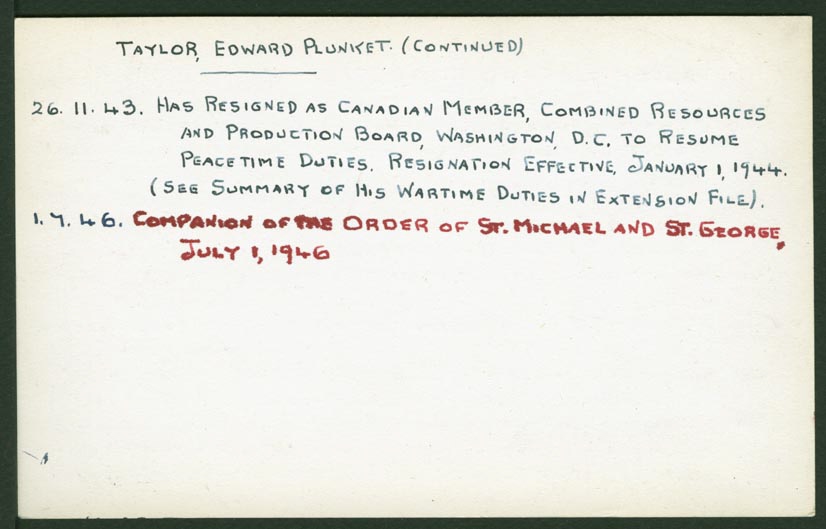 TAYLOR, EDWARD PLUNKET. (CONTINUED)
26. 11. 43. HAS RESIGNED AS CANADIAN MEMBER, COMBINED RESOURCES
AND PRODUCTION BOARD, WASHINGTON, D.C. TO RESUME
PEACETIME DUTIES. RESIGNATION EFFECTIVE, JANUARY 1, 1944.
(SEE SUMMARY OF HIS WARTIME DUTIES IN EXTENSION FILE).
1. 7. 46. COMPANION OF THE ORDER OF ST. MICHAEL AND ST. GEORGE,
JULY 1, 1946